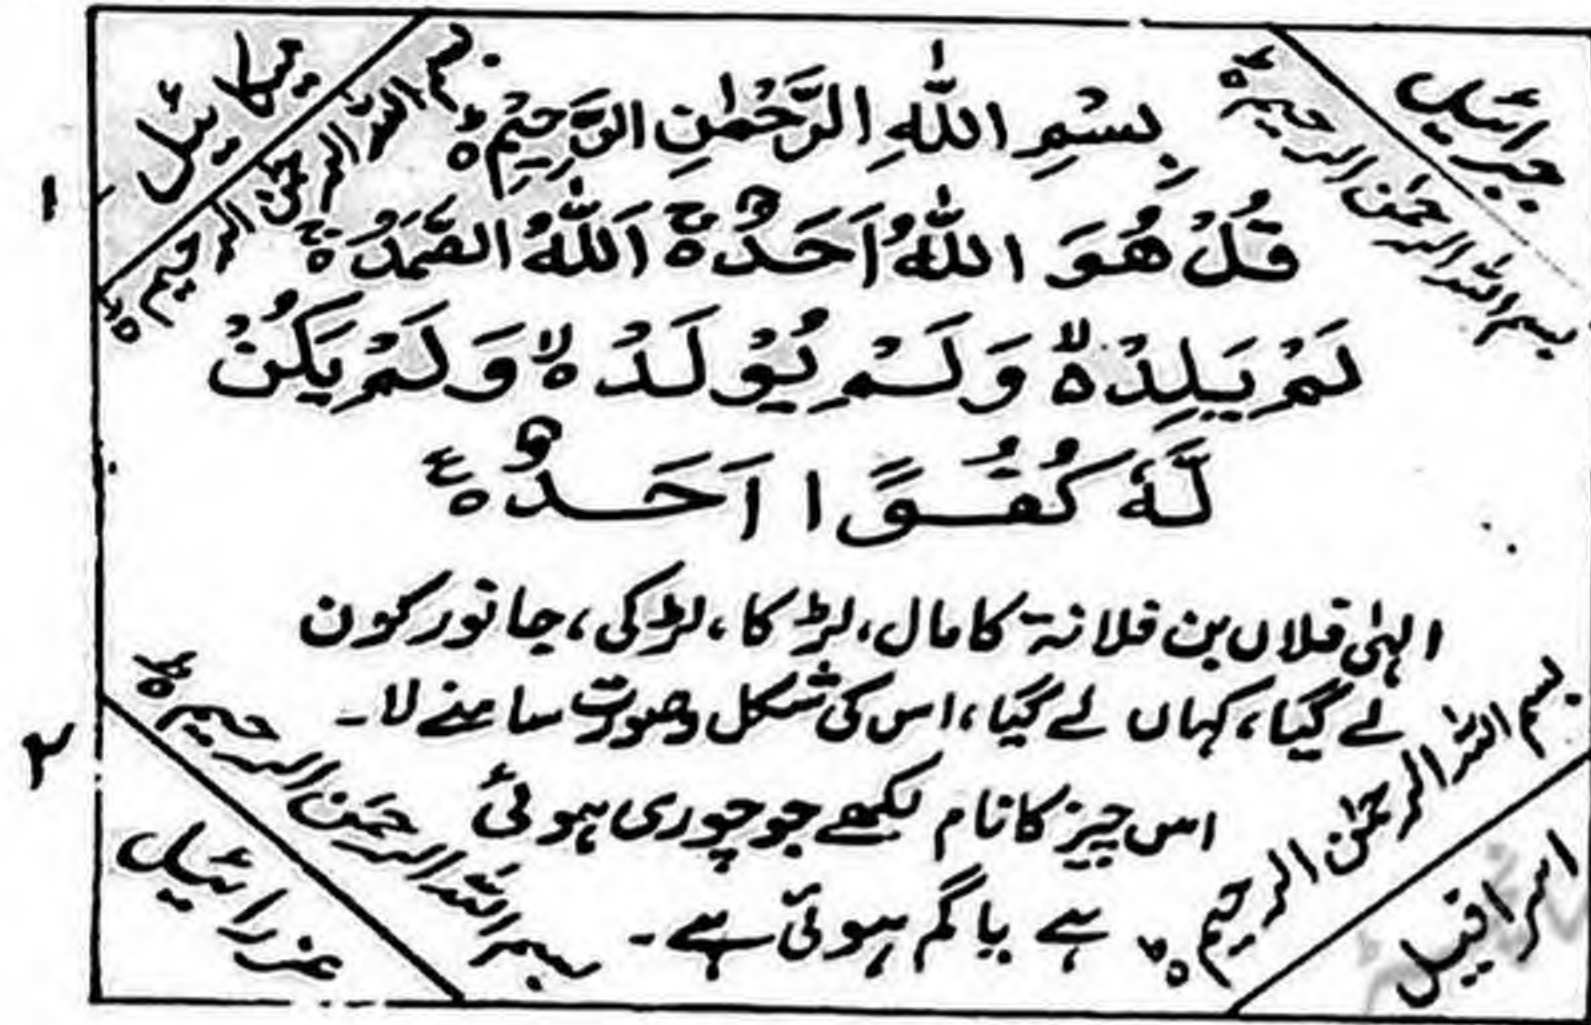 جبرائیل
میکائیل
بسم اللہ الرحمٰن الرحیم ہ
بسم اللہ الرحمٰن الرحیم ہ
بِسْمِ اللّٰهِ الرَّحْمٰنِ الرَّحِيْمِ ہ
قُلْ هُوَ اللّٰهُ اَحَدٌ ہۚ اَللّٰهُ الصَّمَدُ ہۚ
۱
لَمْ يَلِدْ ہۙ وَلَمْ يُوْلَدْ ہۙ وَلَمْ يَكُنْ
لَّهٗ كُفُوًا اَحَدٌ ہع
الہٰی فلاں بن فلانۃ کا مال، لڑکا، لڑکی، جانور کون
لے گیا، کہاں لے گیا، اس کی شکل وصورت سامنے لا۔
۲
اس چیز کا نام لکھے جو چوری ہوئی
ہے یا گم ہوئی ہے۔
بسم اللہ الرحمٰن الرحیم ہ
بسم اللہ الرحمٰن الرحیم ہ
اسرافیل
عزرائیل